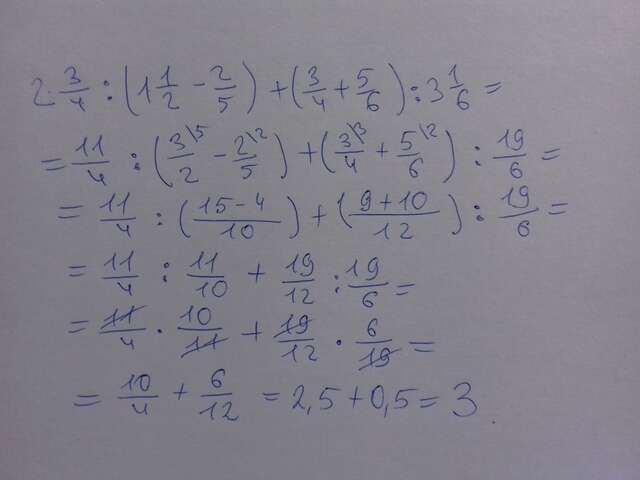 2·3/4 : (1 1/2 - 2/5) + (3/4 + 5/6) : 3 1/6 =
= 11/4 : (3\5/2 - 2\2/5) + (3\3/4 + 5\2/6) : 19/6 =
= 11/4 : (15-4/10) + (9+10/12) : 19/6 =
= 11/4 : 11/10 + 19/12 : 19/6 =
= 11/4 · 10/11 + 19/12 · 6/19 =
= 10/4 + 6/12 = 2,5 + 0,5 = 3